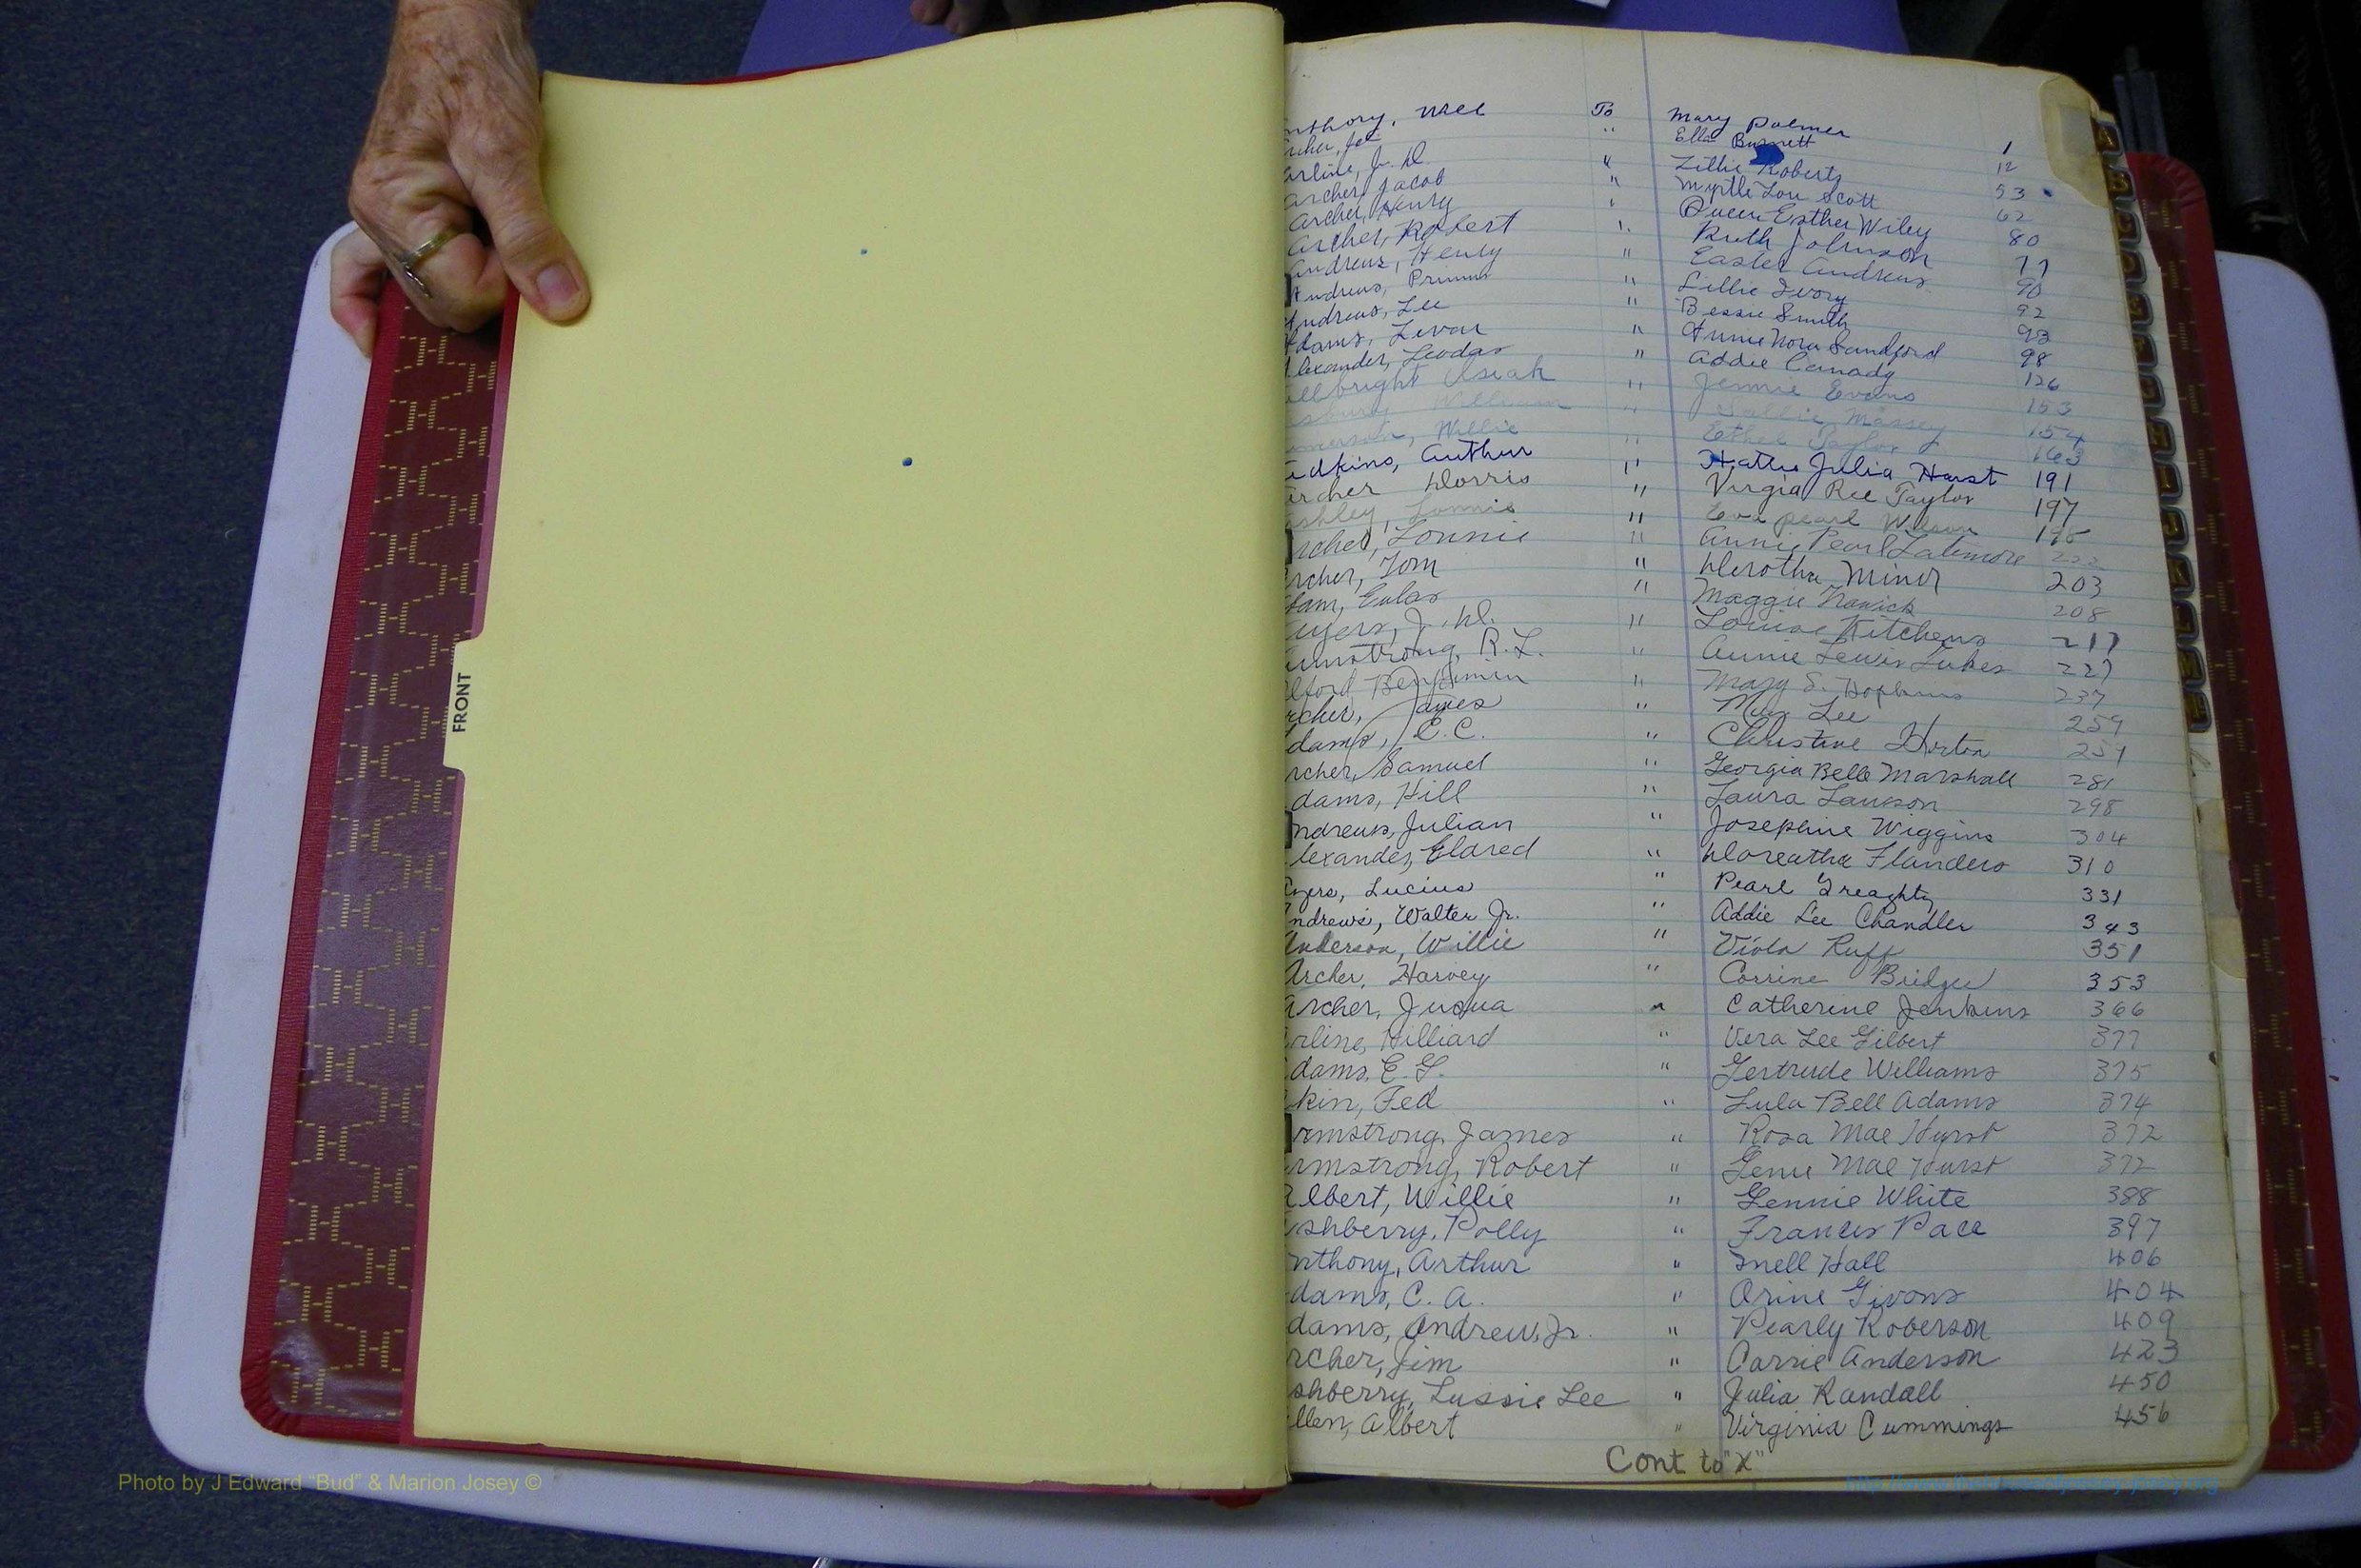 FRONT
nthony, Will To Mary Palmer 1
rcher, Joe " Ella Burnett 12
arline, J. D. " Lillie Roberts 53
archer, Jacob " Myrtle Lou Scott 62
archer, Henry " Queen Esther Wiley 80
archer, Robert " Ruth Johnson 77
andrews, Henry " Easter Andrews 90
Andrews, Primus " Lillie Ivory 92
Andrews, Lee " Bessie Smith 93
Adams, Levar " Annie Nora Sandford 98
Alexander, Leodas " Addie Canady 126
allbright Isiah " Jennie Evans 153
William " Sallie Massey 154
Willie " Ethel Taylor 163
adkins, Arthur " Hattie Julia Hurst 191
archer Dorris " Virgia Ree Taylor 197
ashley, Lonnie " Eva pearl Wilson 195
rcher, Lonnie " Annie Pearl Latimore 222
rcher, Tom " Dorotha Minor 203
dam, Eular " Maggie 208
ayers, J. D. " Louise Kitchens 217
armstrong, R.L. " Annie Lewis Lukes 227
lford Benjimin " Mary S. Hopkins 237
rcher, James " May Lee 259
dams, E.C. " Christine Horton 259
rcher, Samuel " Georgia Belle Marshall 281
dams, Hill " Laura Lawson 298
ndrews, Julian " Josephine Wiggins 304
lexander, Eldred " Doreatha Flanders 310
ayers, Lucius " Pearl Greaghty 331
ndrews, Walter Jr. " Addie Lee Chandler 343
Anderson, Willie " Viola Ruff 351
Archer, Harvey " Corrine Bridges 353
Archer, Jusqua " Catherine Jenkins 366
arline, Hilliard " Vera Lee Gilbert 377
dams, E. G. " Gertrude Williams 375
kin, Fed " Lula Bell Adams 374
rmstrong, James " Rosa Mae Hurst 372
rmstrong, Robert " Genie Mae Hurst 372
Albert, Willie " Gennie White 388
shberry, Polly " Frances Pace 397
nthony, Arthur " Snell Hall 406
dams, C. A. " Orine Givons 404
dams, Andrew, Jr. " Pearly Roberson 409
rcher, Jim " Carrie Anderson 423
shberry, Lussie Lee " Julia Randall 450
llen, Albert " Virginia Cummings 456
Cont to "X"
Photo by J Edward "Bud" & Marion Josey ©